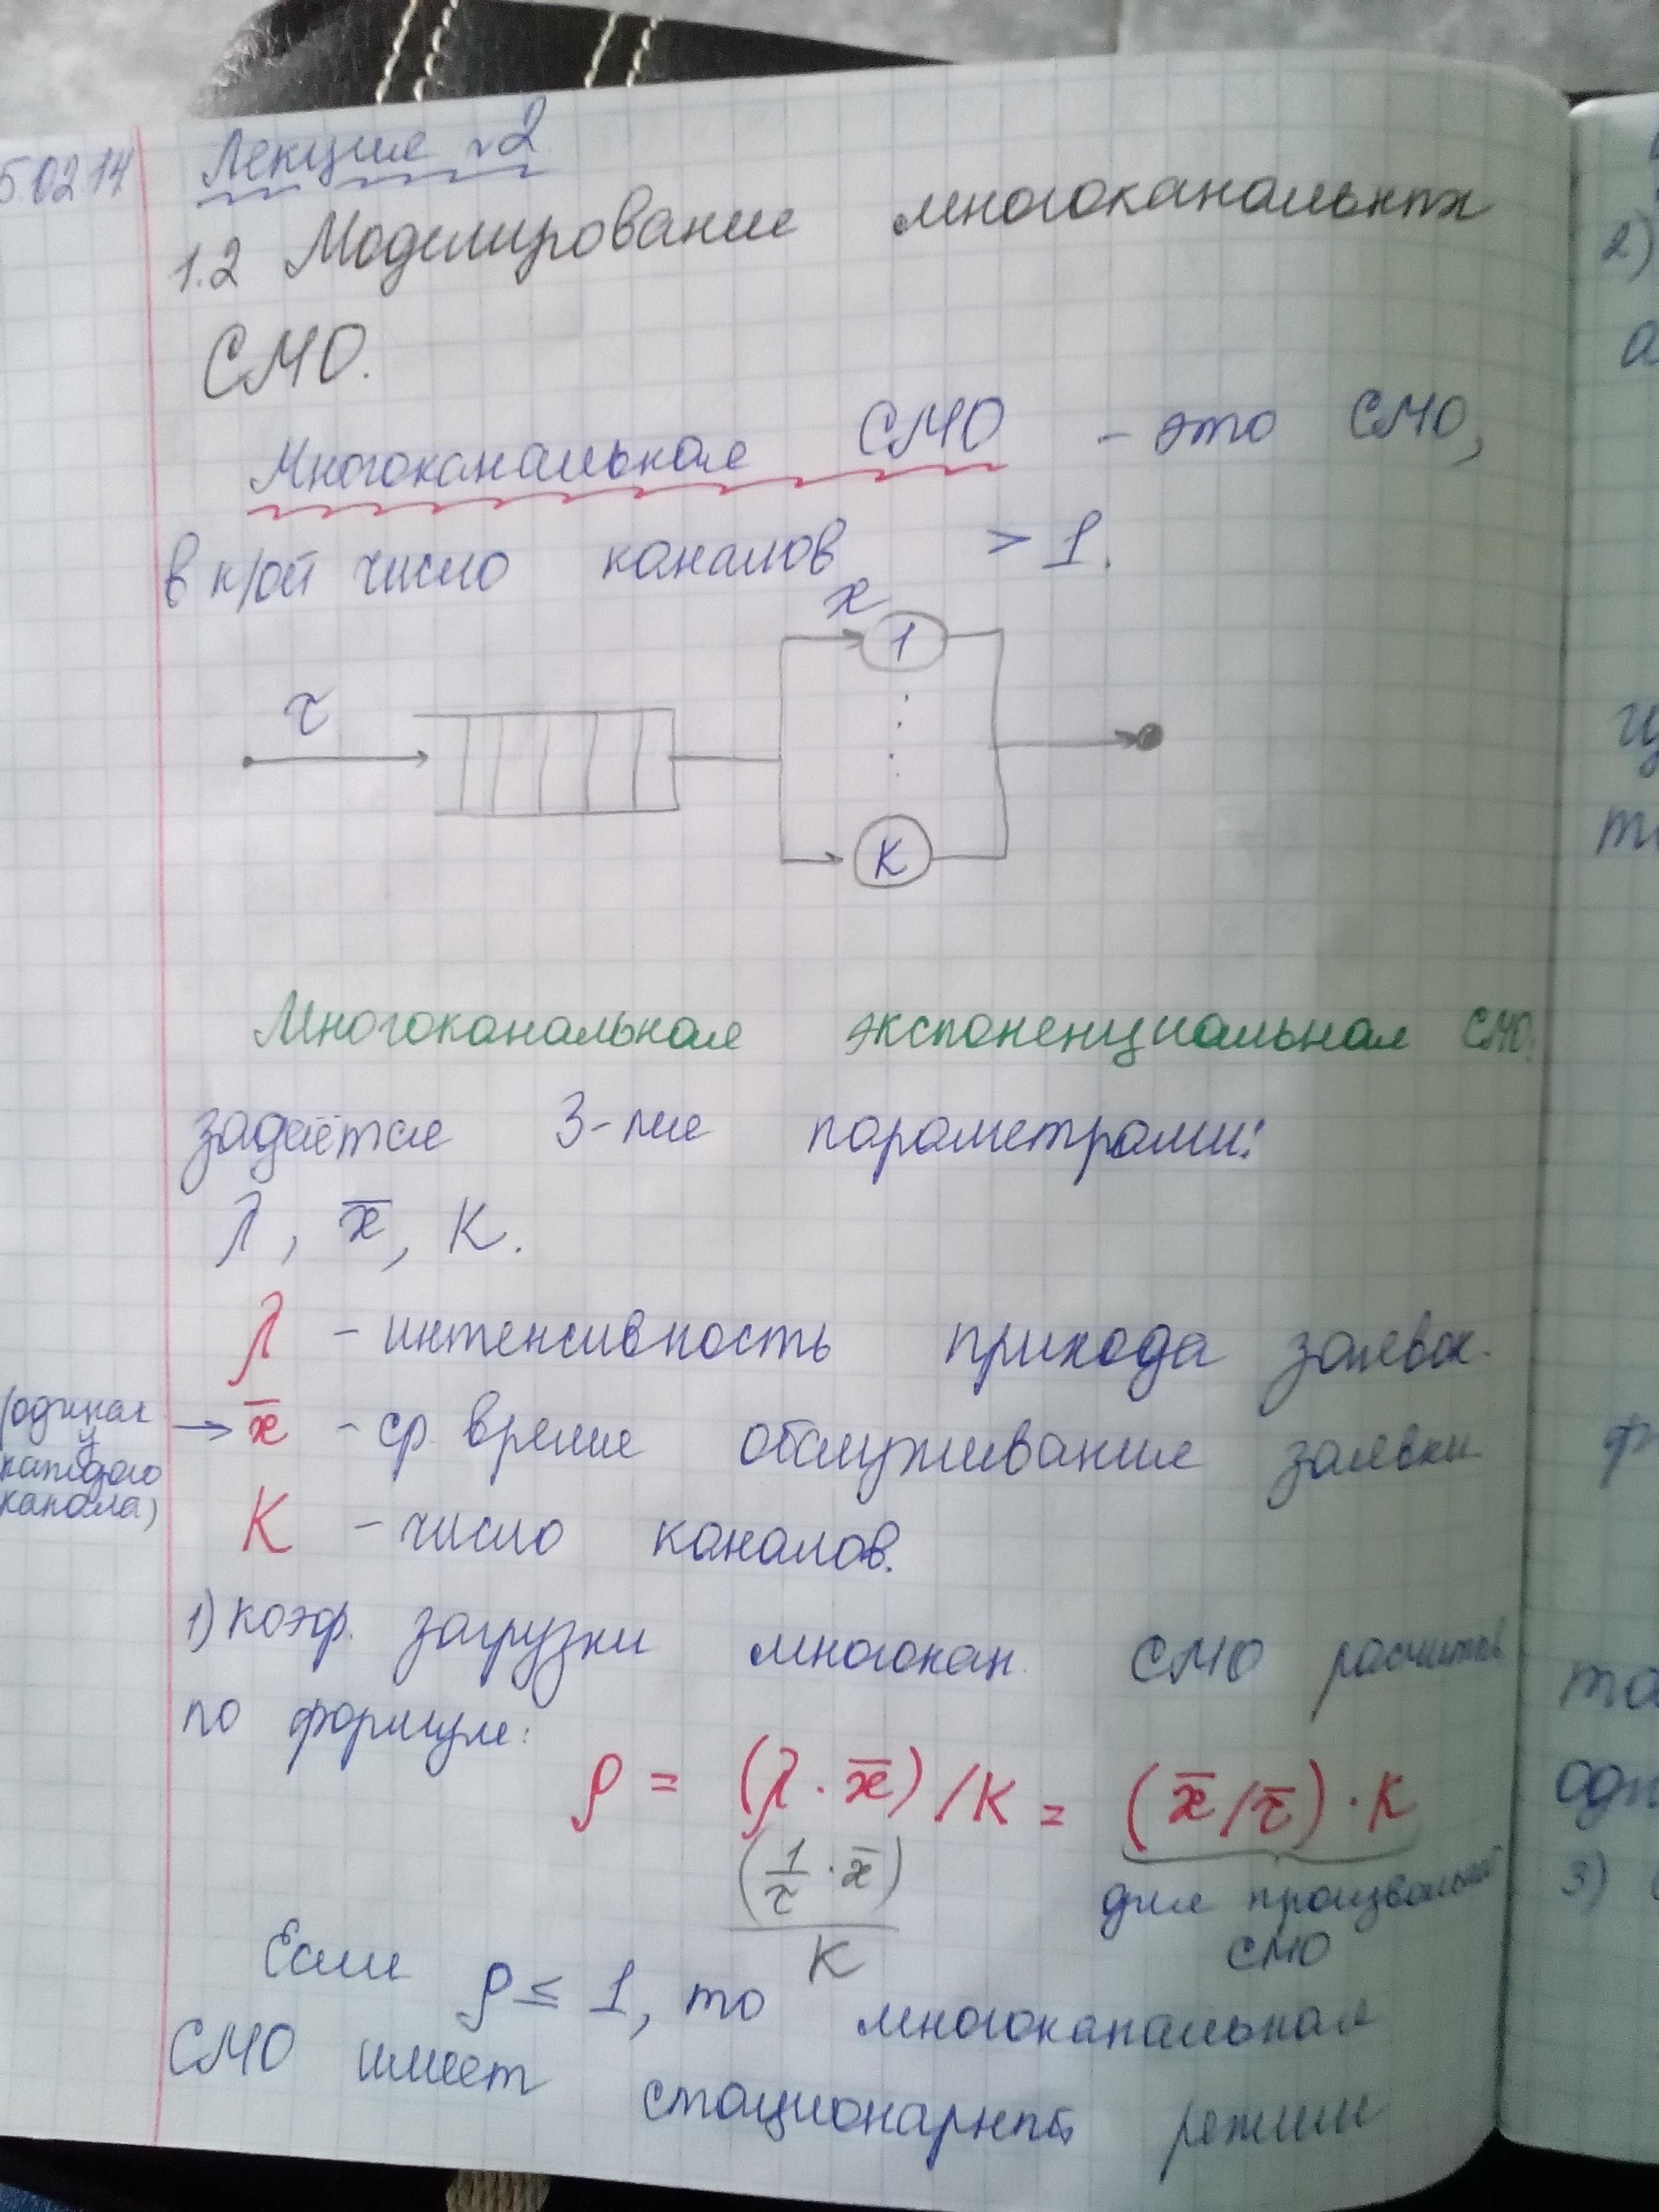 50214
Лекция №2
1.2 Моделирование многоканальных
СМО.
Многоканальная СМО - это СМО,
в к/ой число каналов > 1.
x
1
τ
K
Многоканальная экспоненциальная СМО.
задаётся 3-мя параметрами:
λ, x̄, K.
λ - интенсивность прихода заявок.
(одинак у каждого канала) → x̄ - ср. время обслуживания заявки
K - число каналов.
1) коэф. загрузки многокан. СМО расчитыв
по формуле:
ρ = (λ · x̄) / K = (x̄ / τ̄) · K
(1/τ · x̄) / K
для произвольной
СМО
Если ρ ≤ 1, то многоканальная
СМО имеет стационарный режим
2)
а
3)